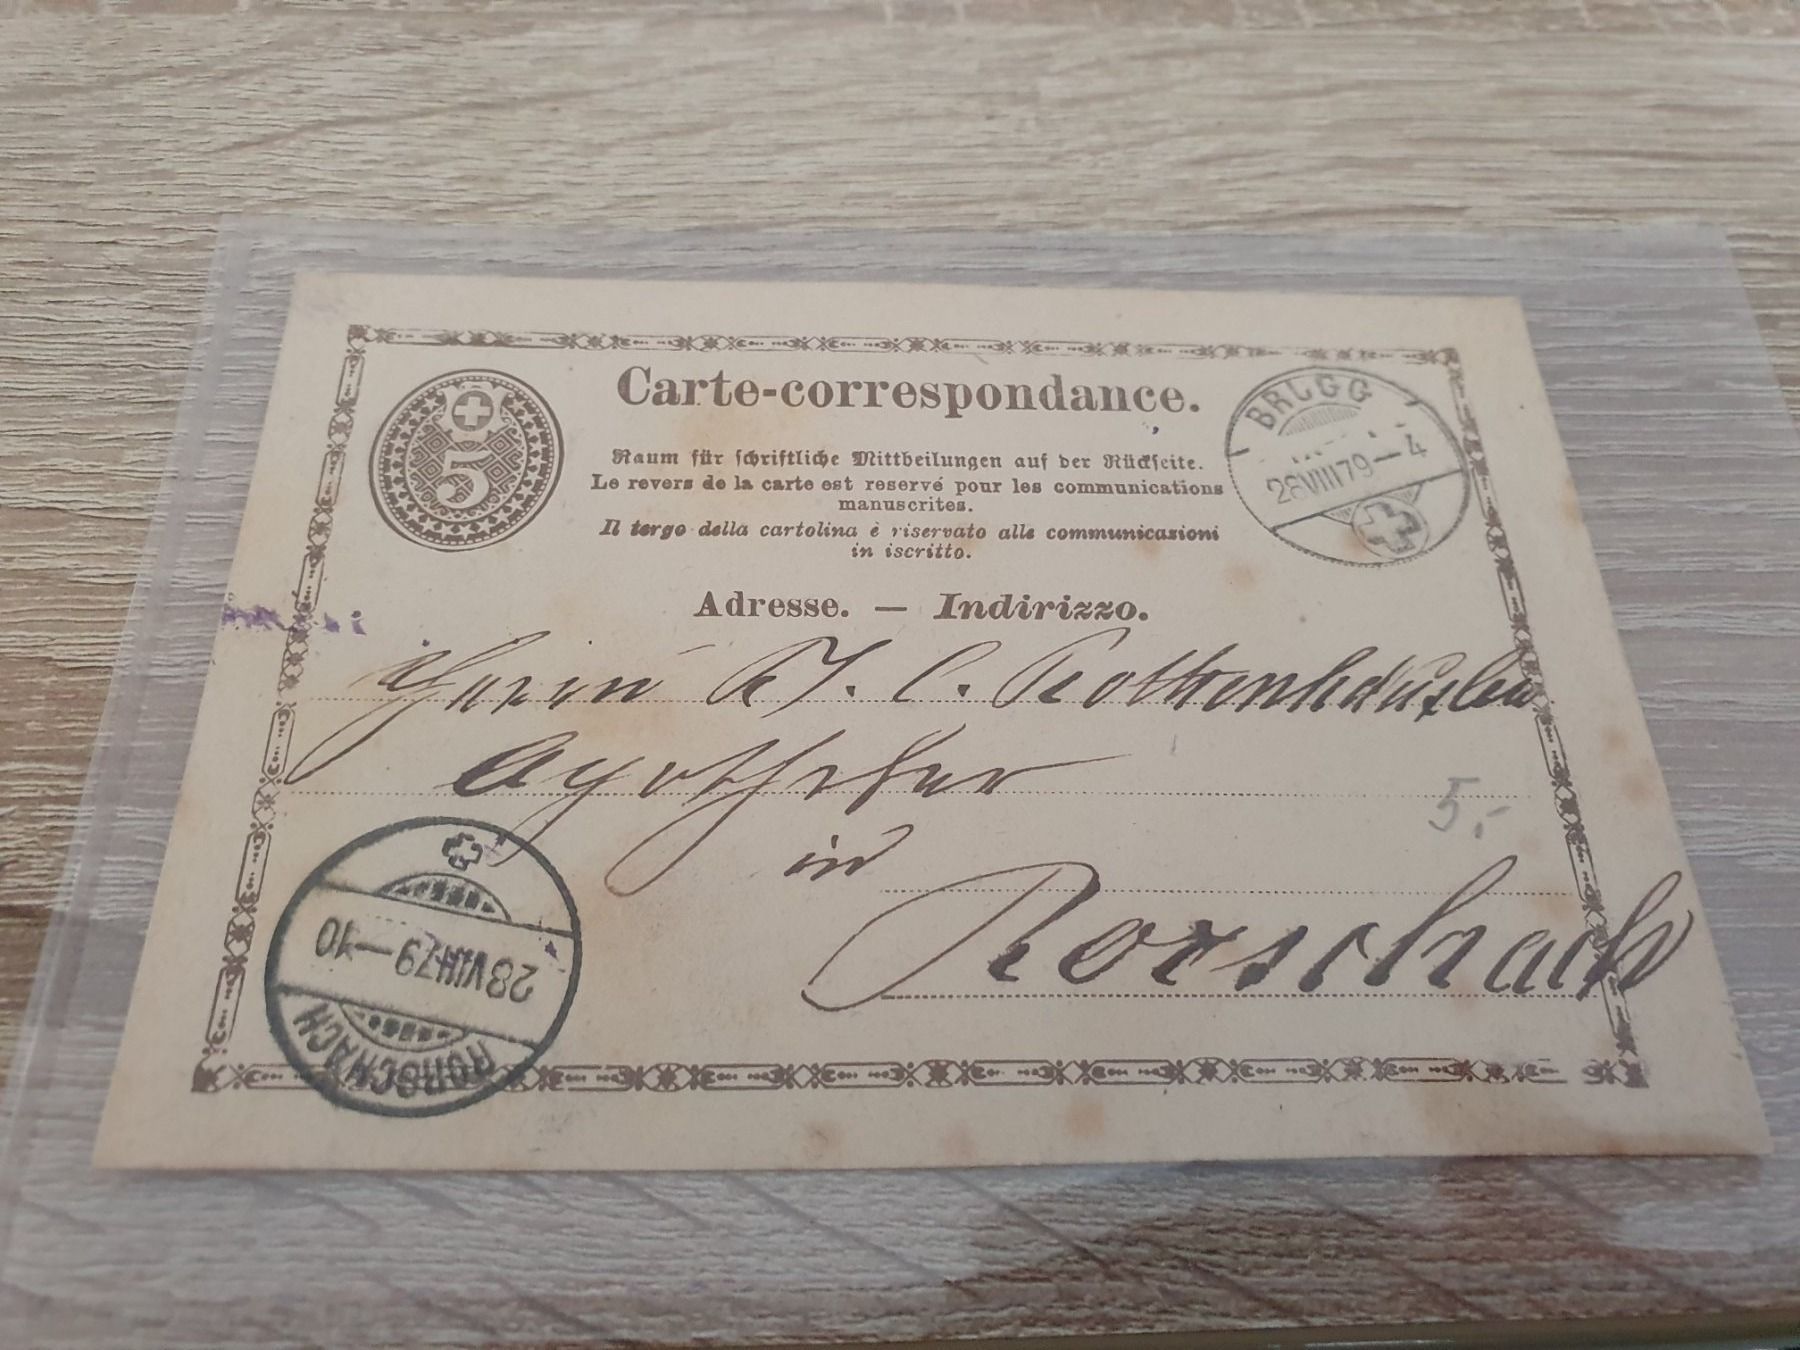 Carte-correspondance.
5
Raum für schriftliche Mittheilungen auf der Rückseite.
Le revers de la carte est reservé pour les communications
manuscrites.
Il tergo della cartolina è riservato alle communicazioni
in iscritto.
BRUGG
28 VIII 79 – 4
Adresse. — Indirizzo.
Herrn J. C. Rothenhäusler
Apotheker
5.-
in
Rorschach
28 VIII 79 – 10
RORSCHACH